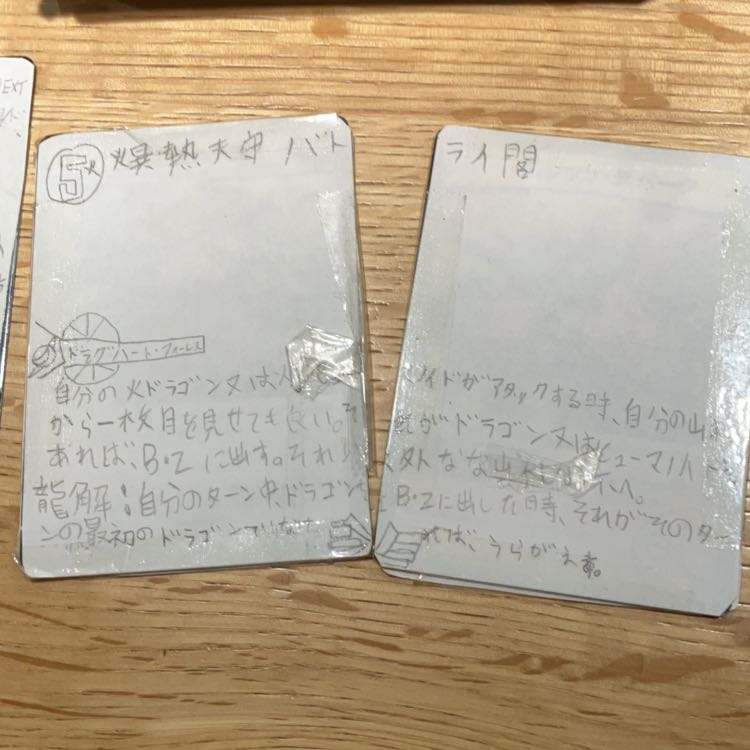 EXT
5 火 爆熱天守 バトライ閣
ドラグハート・フォーレス
自分の火ドラゴン又は イドがアタックする時、自分の山
から一枚目を見せても良い。そ れがドラゴン又はヒューマノイ
あれば、B・Zに出す。それ 外なな
龍解:自分のターン中、ドラゴン をB・Zに出した時、それがそのター
ンの最初のドラゴンでなけ れば、うらがえす。